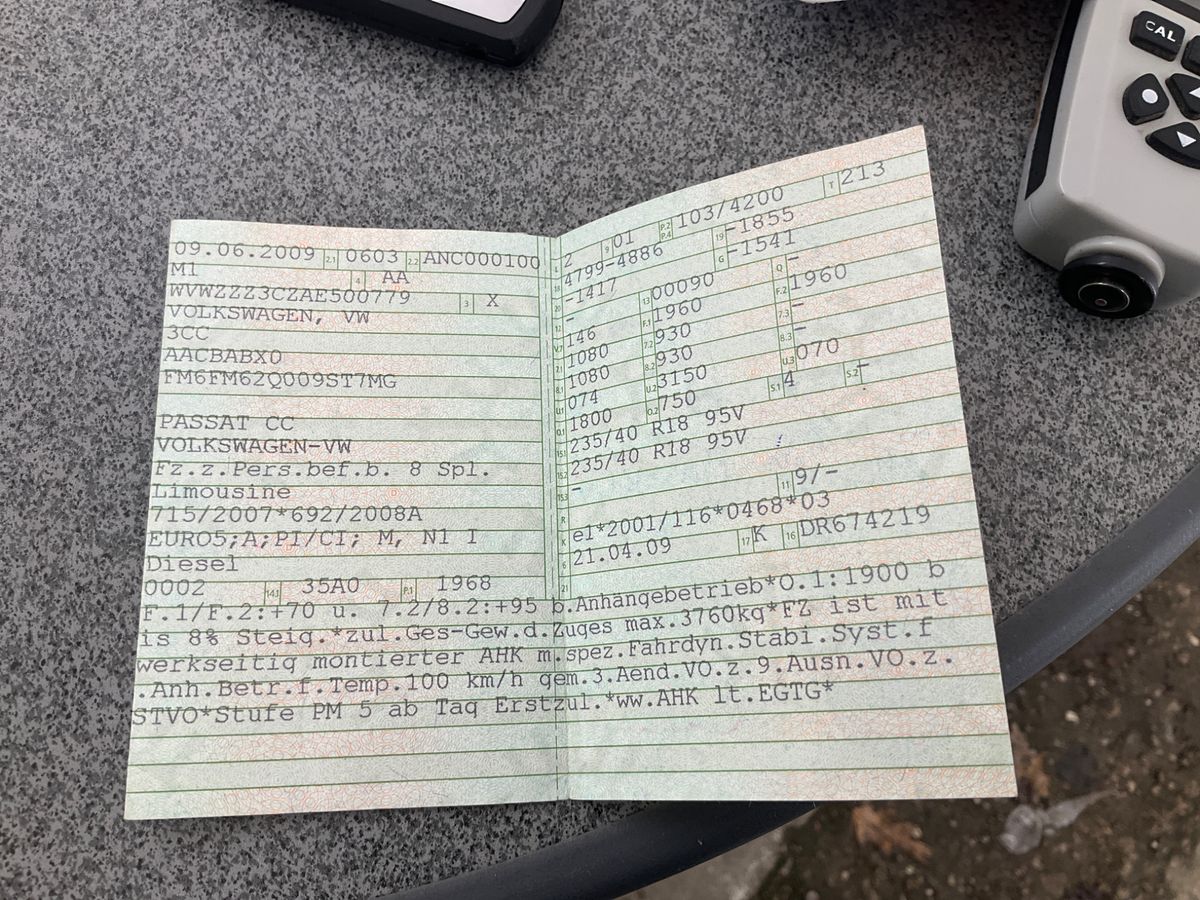 CAL
09.06.2009 2.1 0603 2.2 ANC000100
M1 4 AA
WVWZZZ3CZAE500779 3 X
VOLKSWAGEN, VW
3CC
AACBABX0
FM6FM62Q009ST7MG
PASSAT CC
VOLKSWAGEN-VW
Fz.z.Pers.bef.b. 8 Spl.
Limousine
715/2007*692/2008A
EURO5;A;PI/CI; M, N1 I
Diesel
0002 14.1 35A0 P.1 1968
L 2 9 01 P.2 P.4 103/4200 T 213
18 4799-4886 19 -1855
20 -1417 G -1541
12 - 13 00090 Q -
V.7 146 F.1 1960 F.2 1960
7.1 1080 7.2 930 7.3 -
8.1 1080 8.2 930 8.3 -
U.1 074 U.2 3150 U.3 070
O.1 1800 O.2 750 S.1 4 S.2 -
15.1 235/40 R18 95V
15.2 235/40 R18 95V
15.3 -
R 11 9/-
K e1*2001/116*0468*03
6 21.04.09 17 K 16 DR674219
21
F.1/F.2:+70 u. 7.2/8.2:+95 b.Anhängebetrieb*O.1:1900 b
is 8% Steig.*zul.Ges-Gew.d.Zuges max.3760kg*FZ ist mit
werkseitig montierter AHK m.spez.Fahrdyn.Stabi.Syst.f
.Anh.Betr.f.Temp.100 km/h gem.3.Aend.VO.z.9.Ausn.VO.z.
STVO*Stufe PM 5 ab Tag Erstzul.*ww.AHK lt.EGTG*